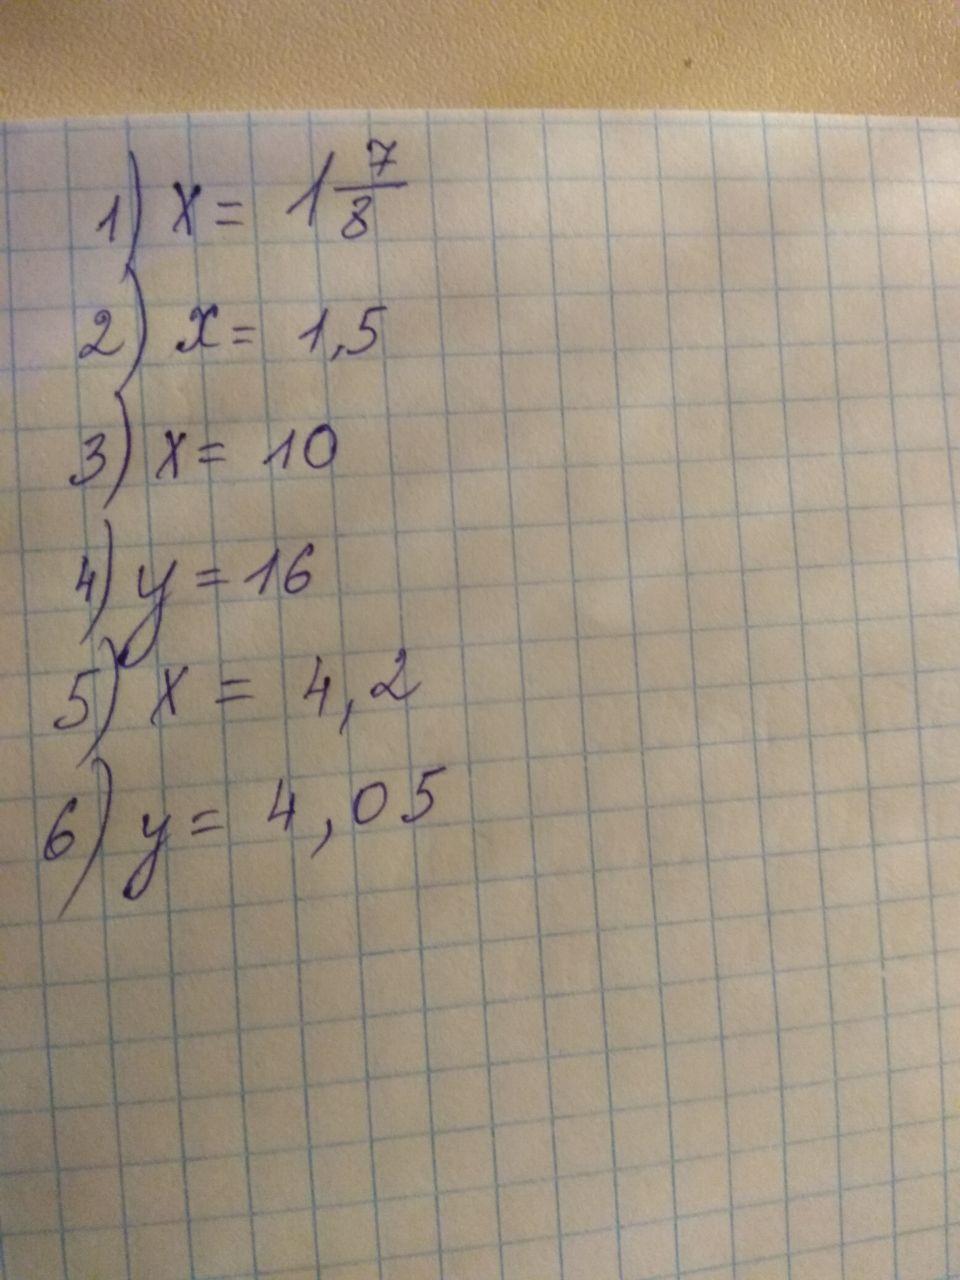 1) x = 1 7/8
2) x = 1,5
3) x = 10
4) y = 16
5) x = 4,2
6) y = 4,05